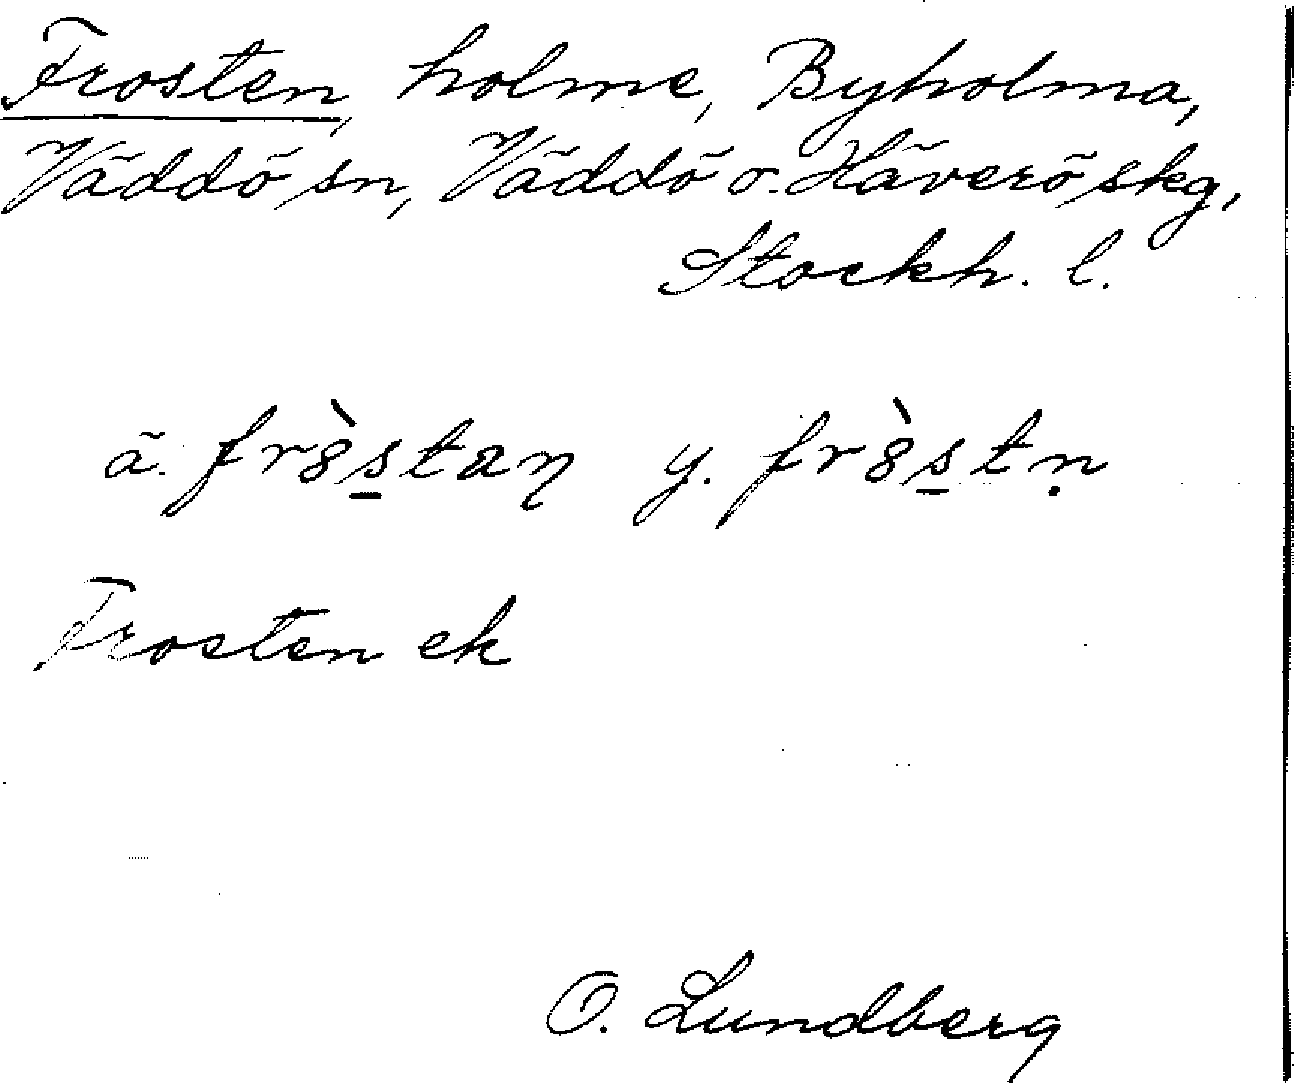 Frosten, holme, Byholma,
Väddö sn, Väddö o. Häverö skg,
Stockh. l.
ä. fr8̀s̲taŋ y. fr8̀s̲tṇ
Frosten ek
O. Lundberg